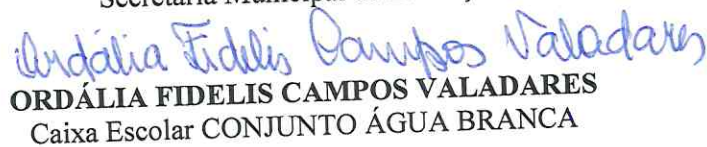 Secretaria Municipal
Ordália Fidelis Campos Valadares
ORDÁLIA FIDELIS CAMPOS VALADARES
Caixa Escolar CONJUNTO ÁGUA BRANCA